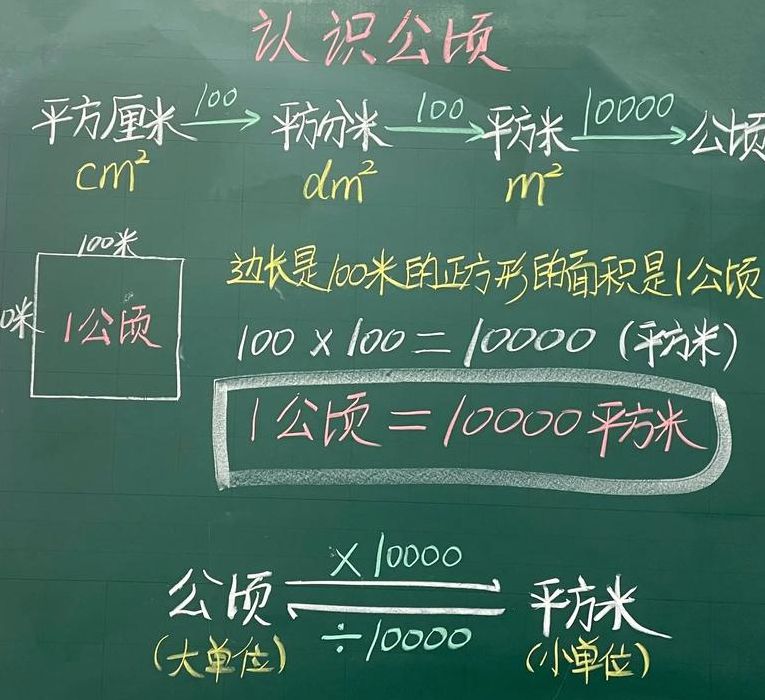 认识公顷
平方厘米 100 平方分米 100 平方米 10000 公顷
cm² dm² m²
100米
边长是100米的正方形的面积是1公顷
0米 1公顷
100×100=10000(平方米)
1公顷=10000平方米
×10000
公顷 平方米
÷10000
(大单位) (小单位)